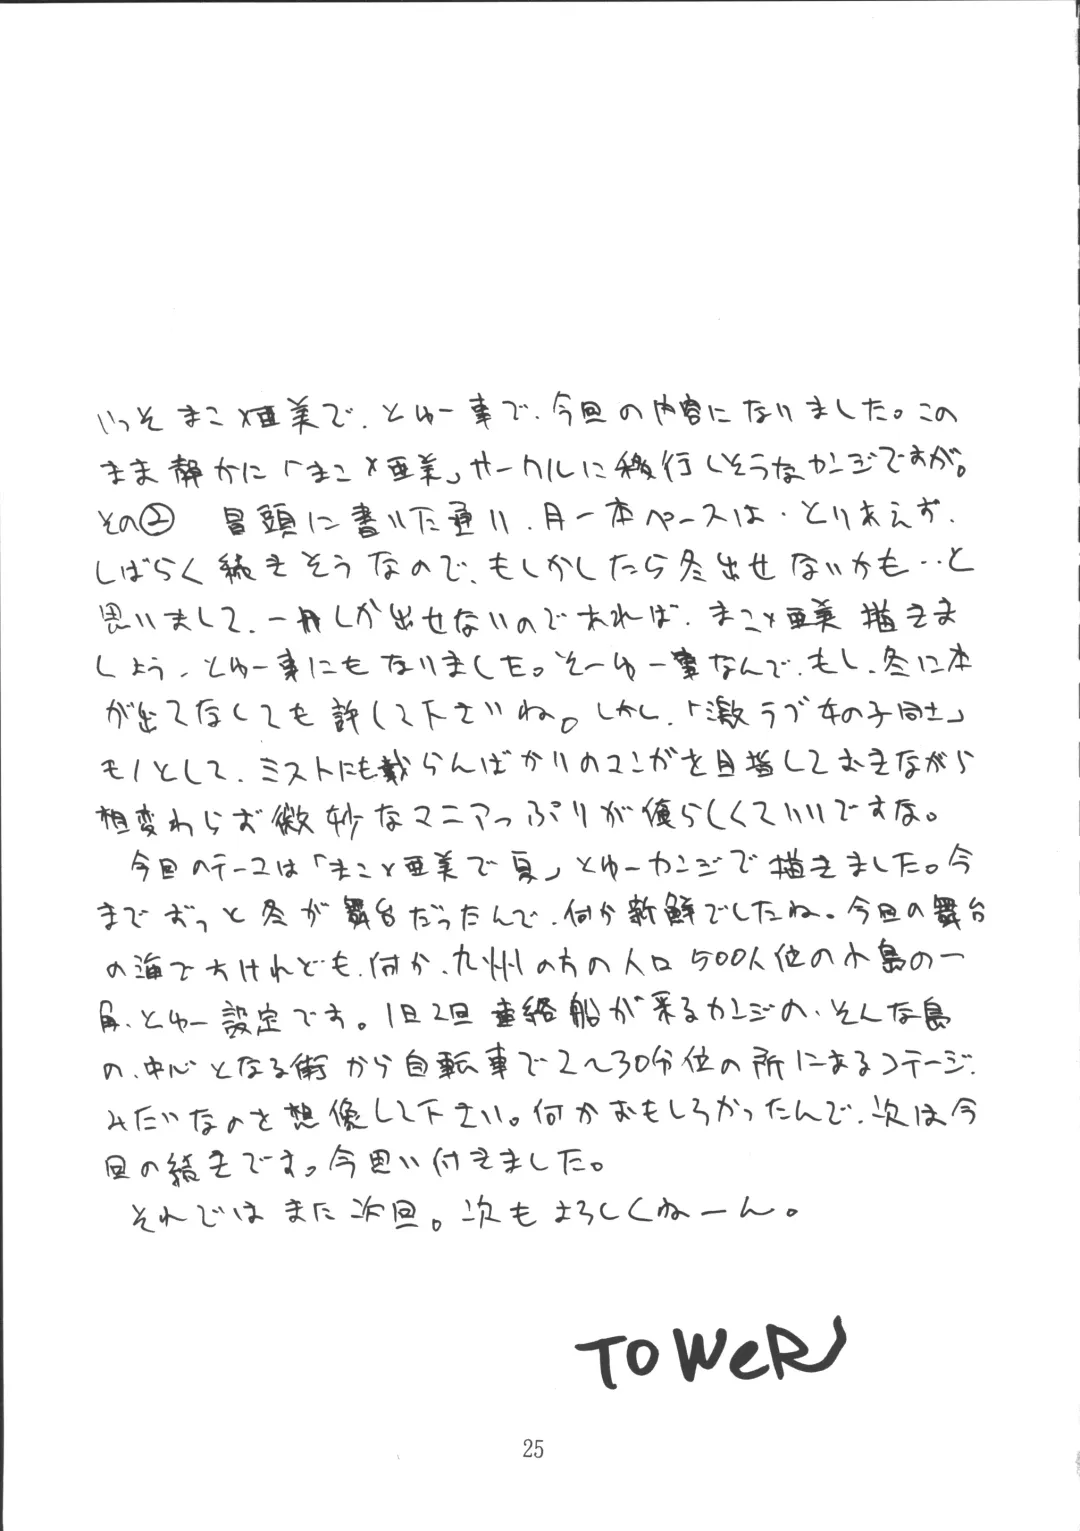 いっそまこ×亜美で、とゆー事で、今回の内容になりました。この
まま静かに「まこ×亜美」サークルに移行しそうなカンジですが。
その② 冒頭に書いた通り、月一本ペースは、とりあえず、
しばらく続きそうなので、もしかしたら冬出せないかも‥と
思いまして、一冊しか出せないのであれば、まこ×亜美描きま
しょう、とゆー事にもなりました。そーゆー事なんで、もし、冬に本
が出てなくても許して下さいね。しかし、「激ラブ女の子同士」
モノとして、ミストにも載らんばかりのマンガを目指しておきながら
相変わらず微妙なマニアっぷりが俺らしくていいですな。
今回のテーマは「まこ×亜美で夏」とゆーカンジで描きました。今
までずっと冬が舞台だったんで、何か新鮮でしたね。今回の舞台
の海ですけれども、何か、九州の方の人口500人位の小島の一
角、とゆー設定です。1日2回連絡船が来るカンジの、そんな島
の、中心となる街から自転車で2〜30分位の所にあるコテージ、
みたいなのを想像して下さい。何かおもしろかったんで、次は今
回の続きです。今思い付きました。
それではまた次回。次もよろしくねーん。
TOWeR
25